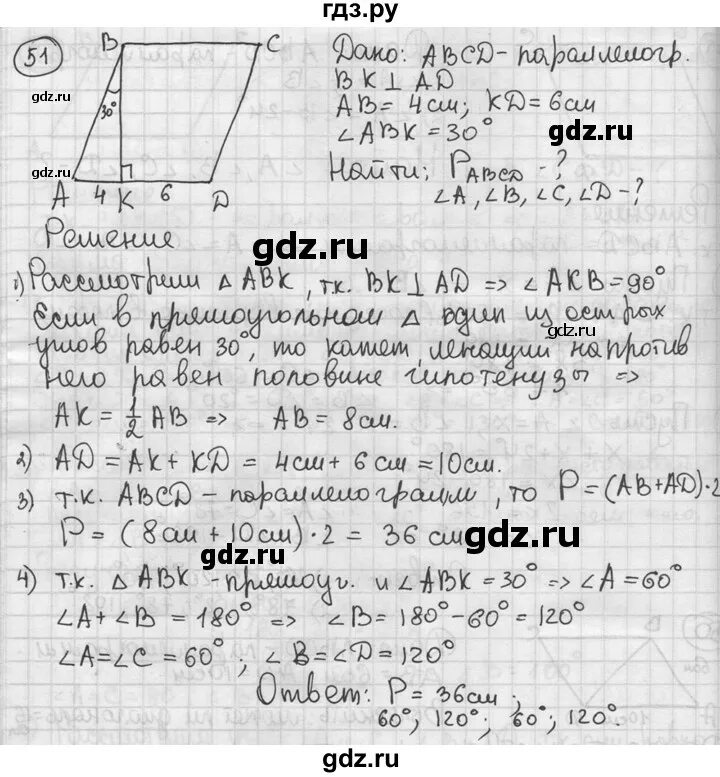 гдз.ру
51
B C
30°
A 4 K 6 D
Дано: ABCD - параллелогр.
BK ⊥ AD
AB = 4 см; KD = 6 см
∠ABK = 30°
Найти: P ABCD - ?
∠A, ∠B, ∠C, ∠D - ?
Решение
1) Рассмотрели △ ABK, т.к. BK ⊥ AD => ∠AKB = 90°
Если в прямоугольном △ один из острых
углов равен 30°, то катет, лежащий напротив
него равен половине гипотенузы =>
AK = 1/2 AB => AB = 8 см.
2) AD = AK + KD = 4 см + 6 см = 10 см.
3) т.к. ABCD - параллелограмм, то P = (AB+AD)·2
P = (8 см + 10 см)·2 = 36 см
4) т.к. △ ABK - прямоуг. и ∠ABK = 30° => ∠A = 60°
∠A + ∠B = 180° => ∠B = 180° - 60° = 120°
∠A = ∠C = 60°; ∠B = ∠D = 120°
Ответ: P = 36 см;
60°; 120°; 60°; 120°.
gdz.ru
gdz.ru
gdz.ru
gdz.ru
gdz.ru
gdz.ru
gdz.ru
gdz.ru